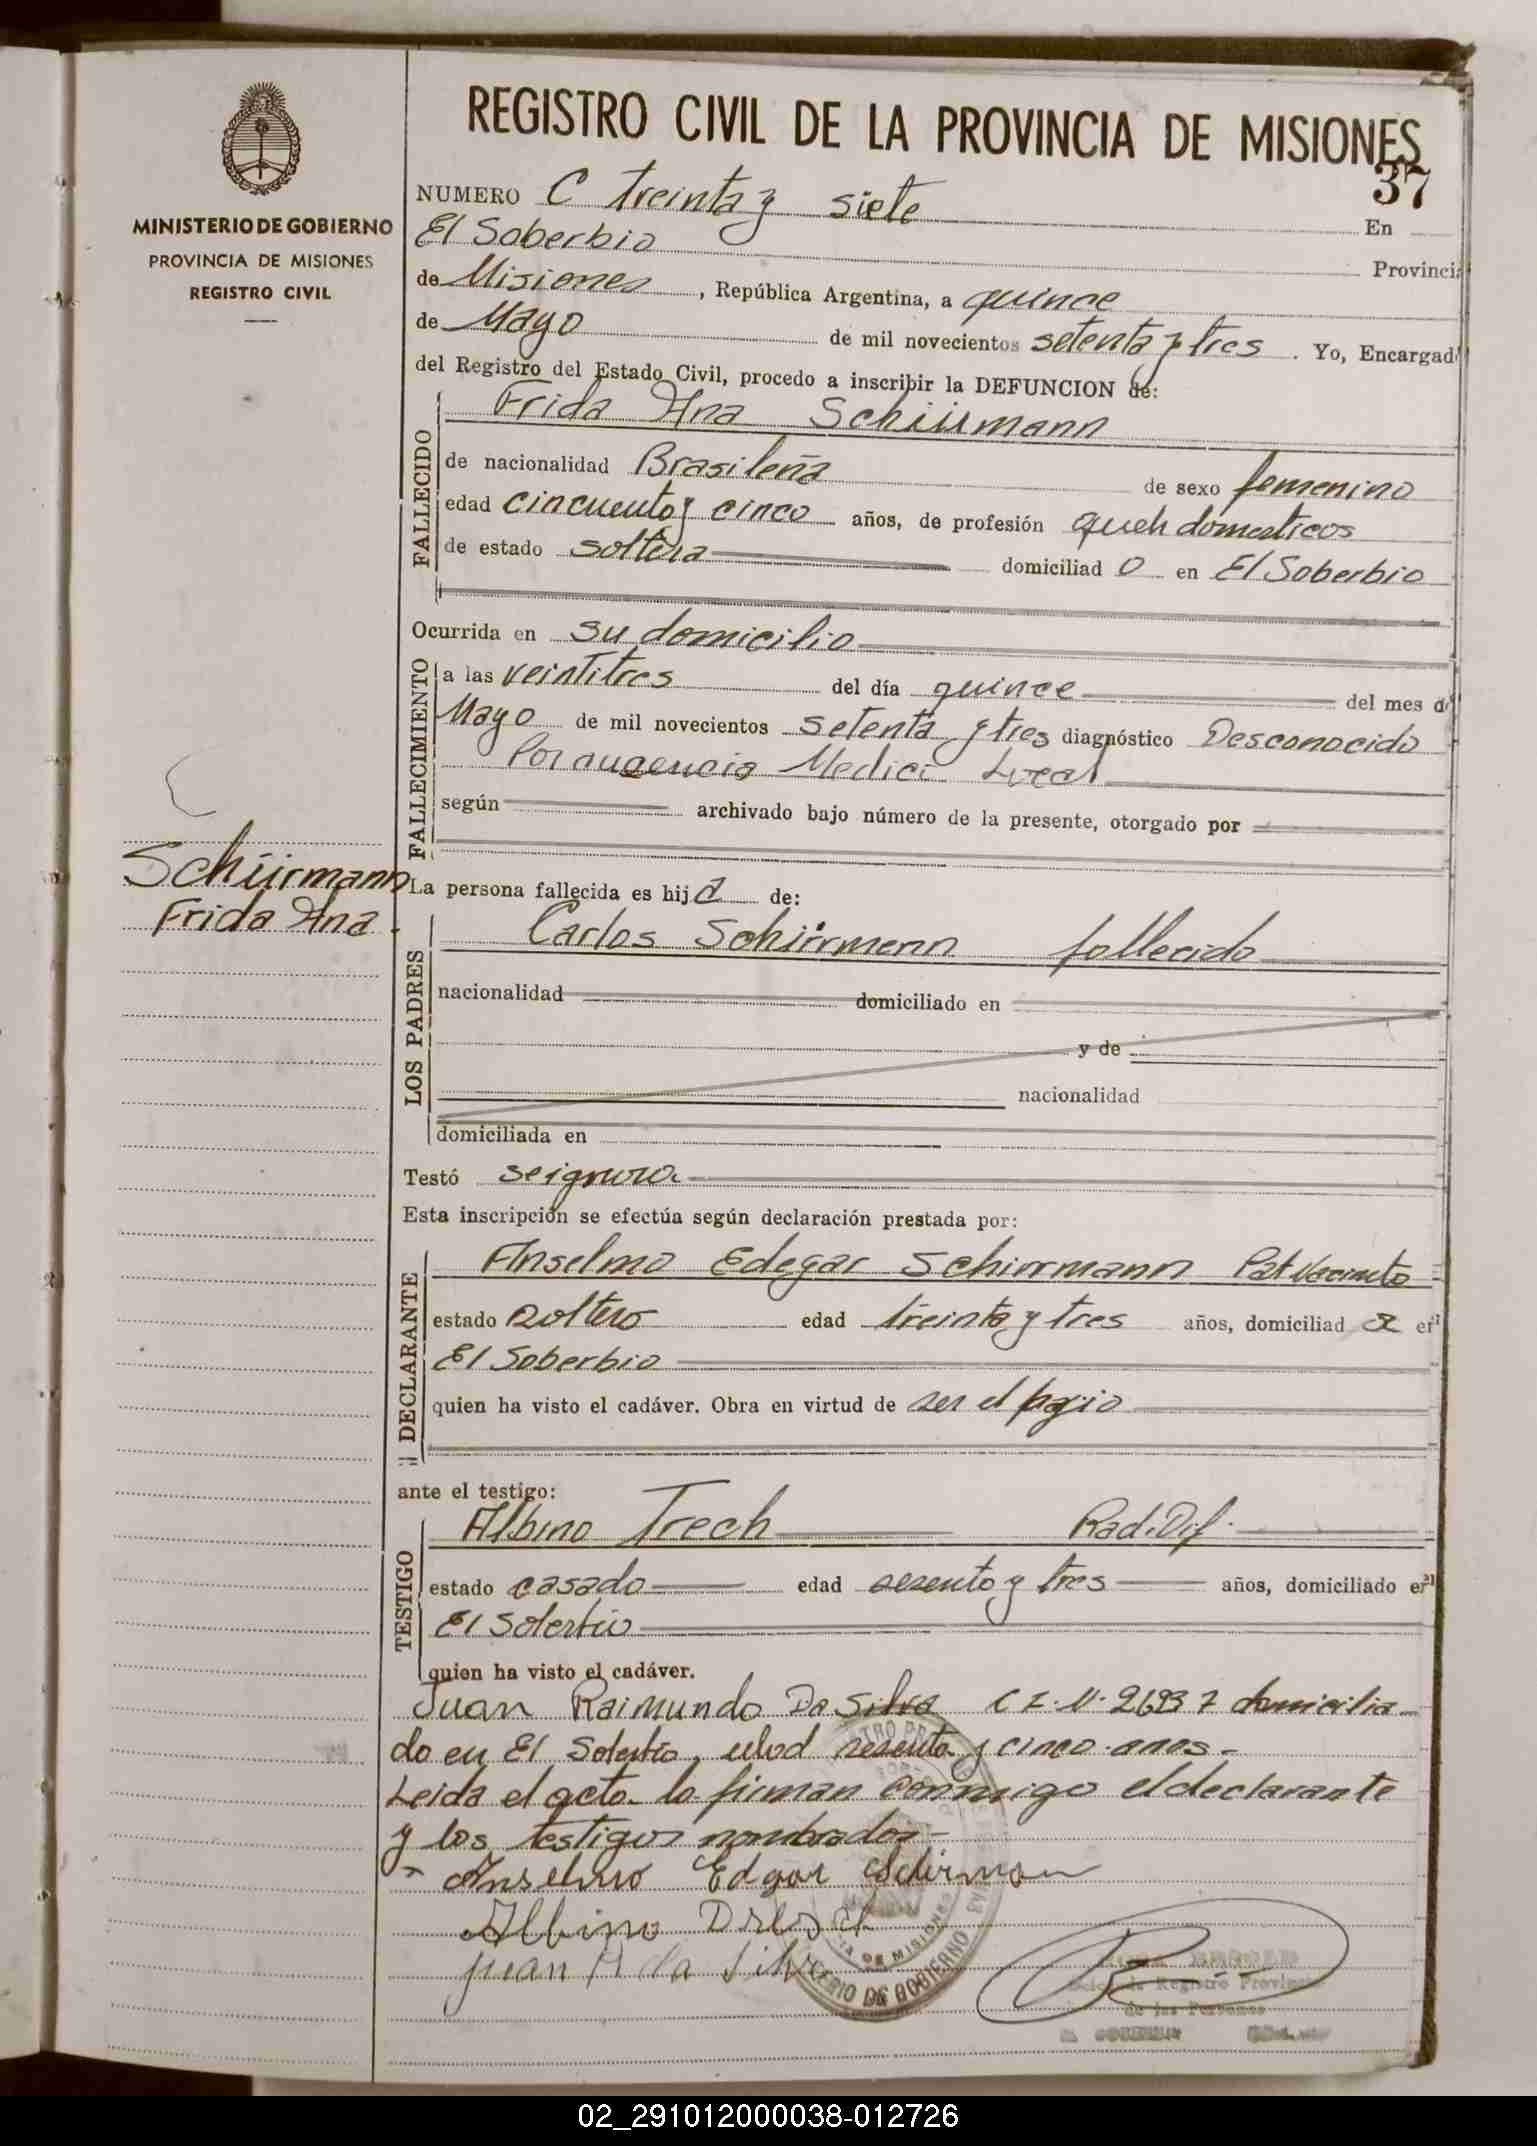 REGISTRO CIVIL DE LA PROVINCIA DE MISIONES
37
MINISTERIO DE GOBIERNO
PROVINCIA DE MISIONES
REGISTRO CIVIL
NUMERO C treinta y siete En
El Soberbio Provincia
de Misiones, República Argentina, a quince
de Mayo de mil novecientos setenta y tres. Yo, Encargad
del Registro del Estado Civil, procedo a inscribir la DEFUNCION de:
FALLECIDO
Frida Ana Schüirmann
de nacionalidad Brasileña de sexo femenino
edad cincuenta y cinco años, de profesión domesticos
de estado soltera domiciliad o en El Soberbio
Ocurrida en su domicilio
FALLECIMIENTO
a las veintitres del día quince del mes d
Mayo de mil novecientos setenta y tres diagnóstico Desconocido
Por ausencia Medico Local
según archivado bajo número de la presente, otorgado por
Schüirmann
Frida Ana
La persona fallecida es hij a de:
LOS PADRES
Carlos Schirrmann fallecido
nacionalidad domiciliado en
y de
nacionalidad
domiciliada en
Testó se ignora
Esta inscripción se efectúa según declaración prestada por:
DECLARANTE
Anselmo Edegar Schirrmann
estado soltero edad treinta y tres años, domiciliad en
El Soberbio
quien ha visto el cadáver. Obra en virtud de ser el
ante el testigo:
TESTIGO
Albino Trech
estado casado edad sesenta y tres años, domiciliado en
El Soberbio
quien ha visto el cadáver.
Juan Raimundo Da Silva C I. N. 26937 domicilia-
do en El Soberbio, edad sesenta y cinco años.-
Leida el acta lo firman conmigo el declarante
y los testigos nombrados-
Anselmo Edgar Schirman
Albino
Juan R da Silva
02_291012000038-012726